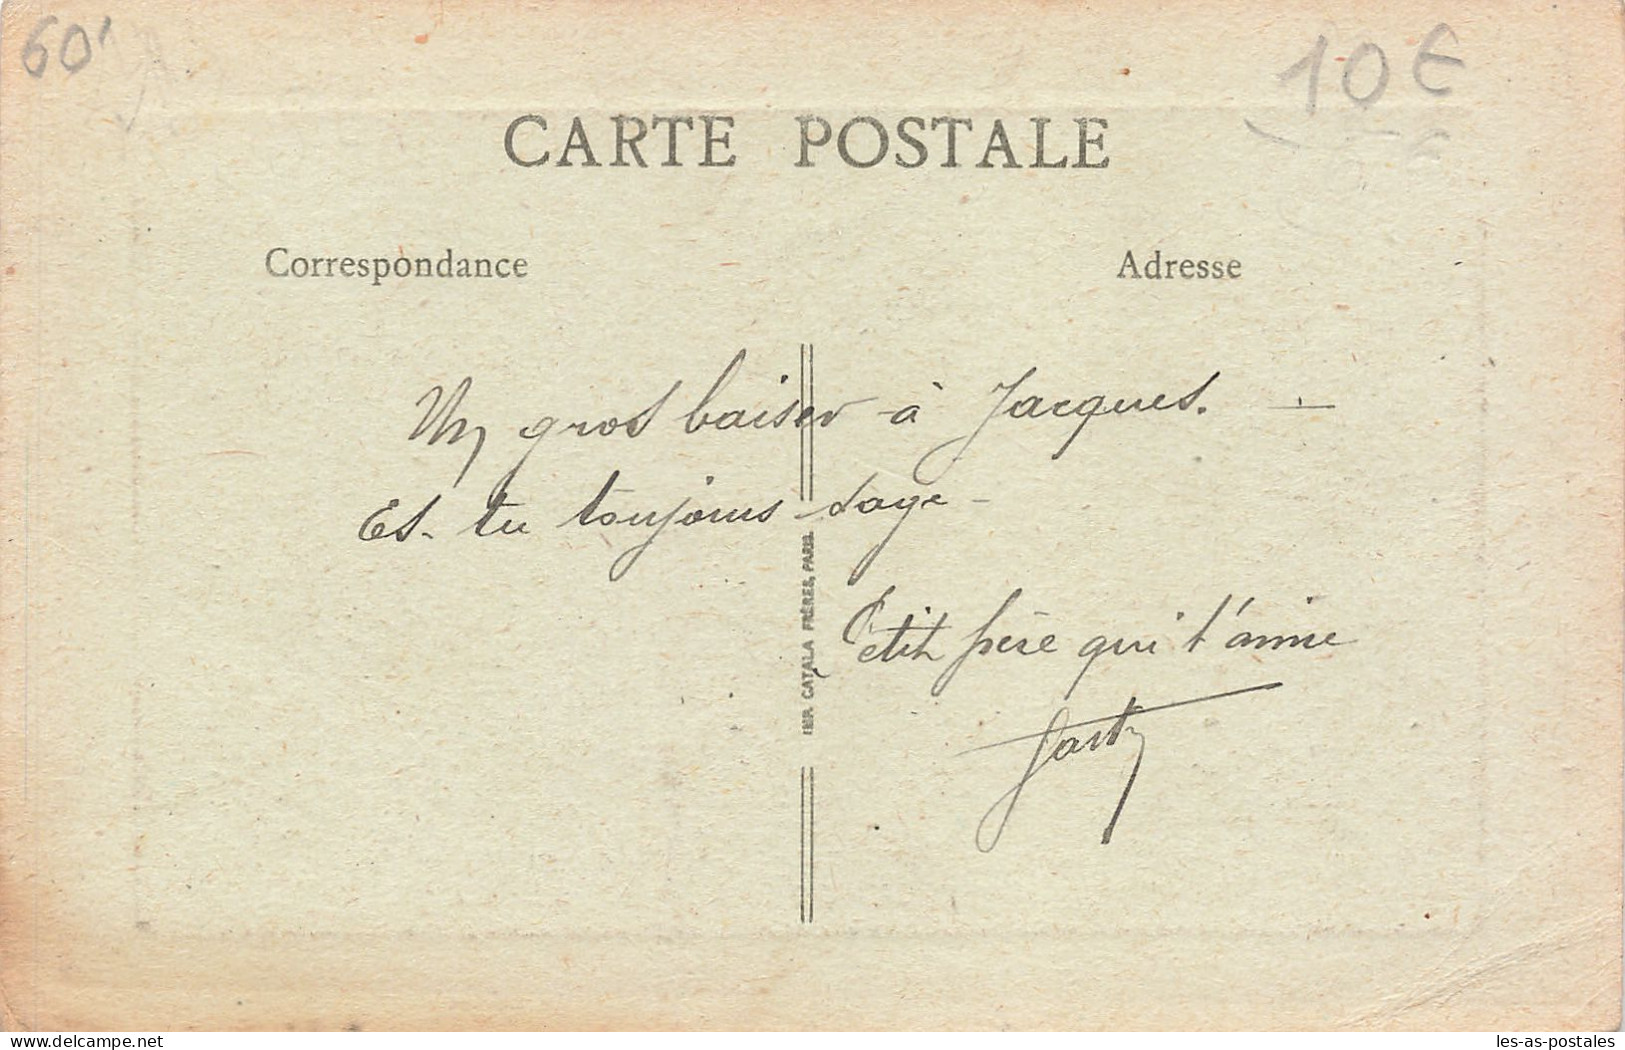 60'
10€
CARTE POSTALE
Correspondance
Adresse
Un gros baiser à Jacques.
Es-tu toujours sage -
Petit père qui t'aime
IMP. CATALA FRÈRES, PARIS.
delcampe.net
les-as-postales